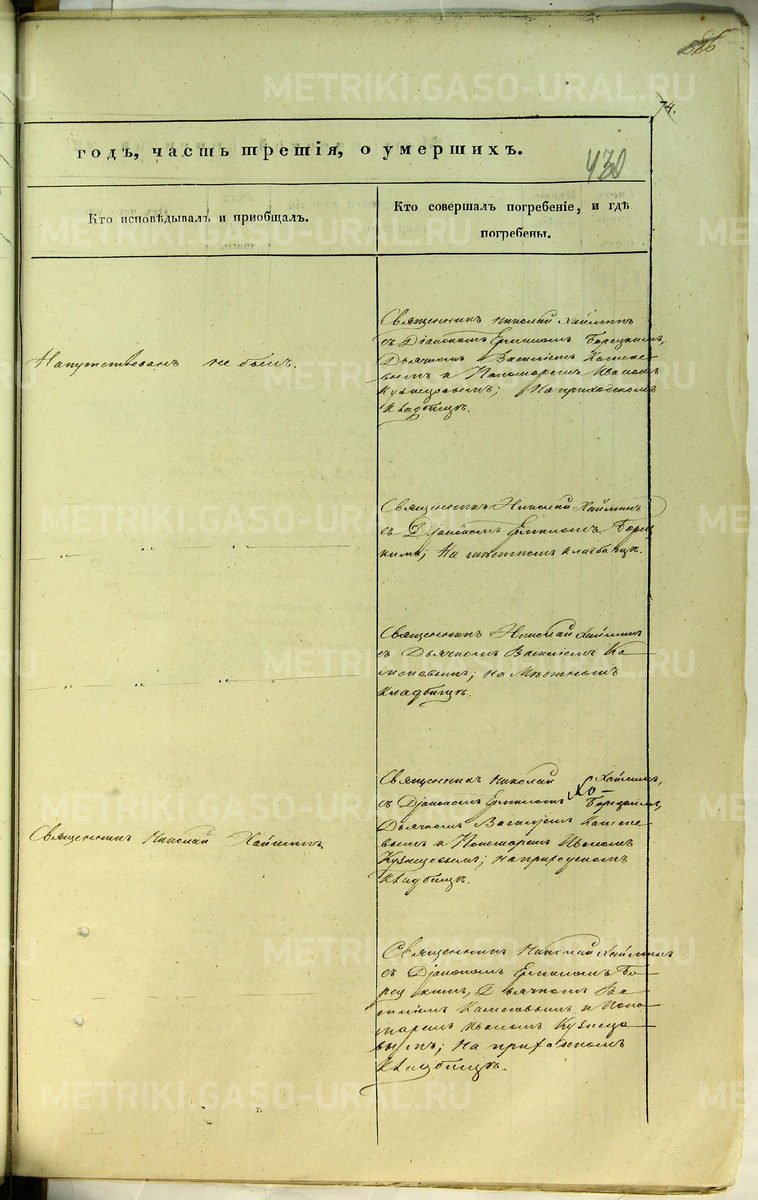 586
74.
годъ, часть третія, о умершихъ.
430
Кто исповѣдывалъ и приобщалъ.
Кто совершалъ погребеніе, и гдѣ
погребены.
Напутствованъ не былъ.
Священникъ Николай Хайминъ
съ Діакономъ Ермиломъ Борецкимъ,
Дьячкомъ Василіемъ Камене-
вымъ и Пономаремъ Иваномъ
Кузнецовымъ; На приходскомъ
Кладбищѣ.
Священникъ Николай Хайминъ
съ Діакономъ Ермиломъ Борец-
кимъ; На мѣстномъ кладбищѣ.
Священникъ Николай Хайминъ
съ Дьячкомъ Василіемъ Ка-
меновымъ; на Мѣстномъ
Кладбищѣ.
Священникъ Николай Хайминъ,
съ Діакономъ Ермиломъ Борецкимъ,
Дьячкомъ Василіемъ Камене-
вымъ и Пономаремъ Иваномъ
Кузнецовымъ; на приходскомъ
Кладбищѣ.
Священникъ Николай Хайминъ
Священникъ Николай Хайминъ
съ Діакономъ Ермиломъ Бо-
рецкимъ, Дьячкомъ Ва-
силіемъ Каменовымъ и Поно-
маремъ Иваномъ Кузнецо-
вымъ; На приходскомъ
Кладбищѣ.
METRIKI.GASO-URAL.RU